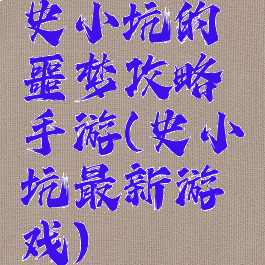 史小坑的
噩梦攻略
手游(史小
坑最新游
戏)